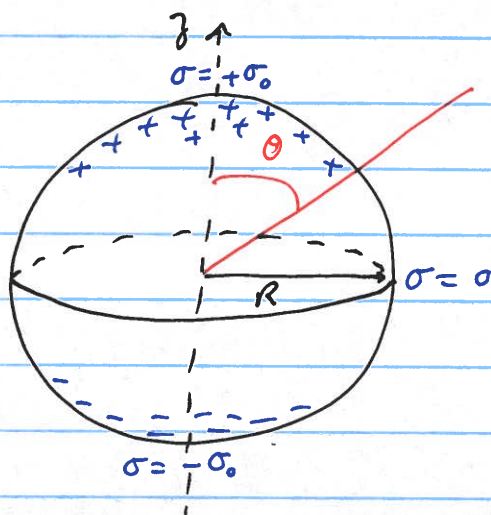 z
σ = +σ₀
+ + + + + + + + + +
θ
R
σ = 0
σ = -σ₀